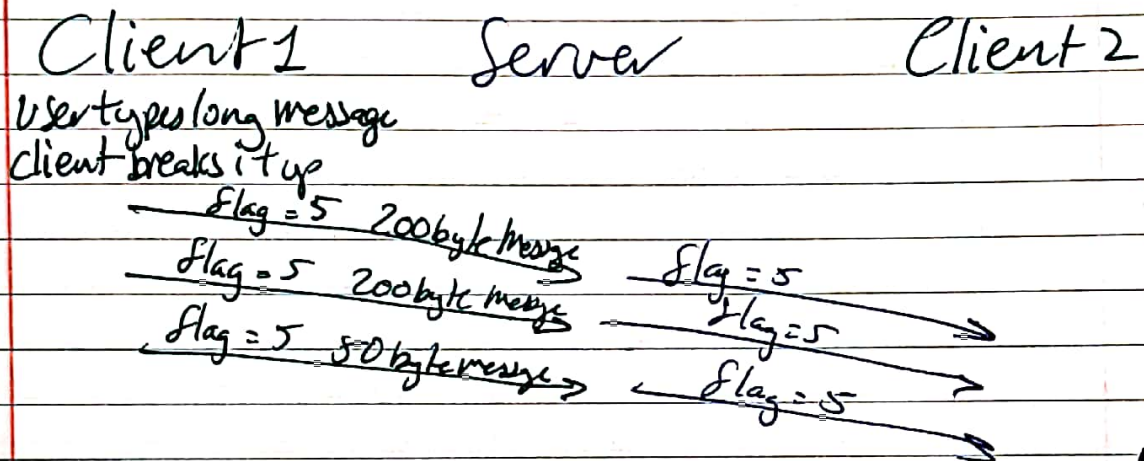 Client 1 Server Client 2
User types long message
client breaks it up
flag = 5 200 byte message
flag = 5
flag = 5 200 byte message
flag = 5
flag = 5 50 byte message
flag = 5